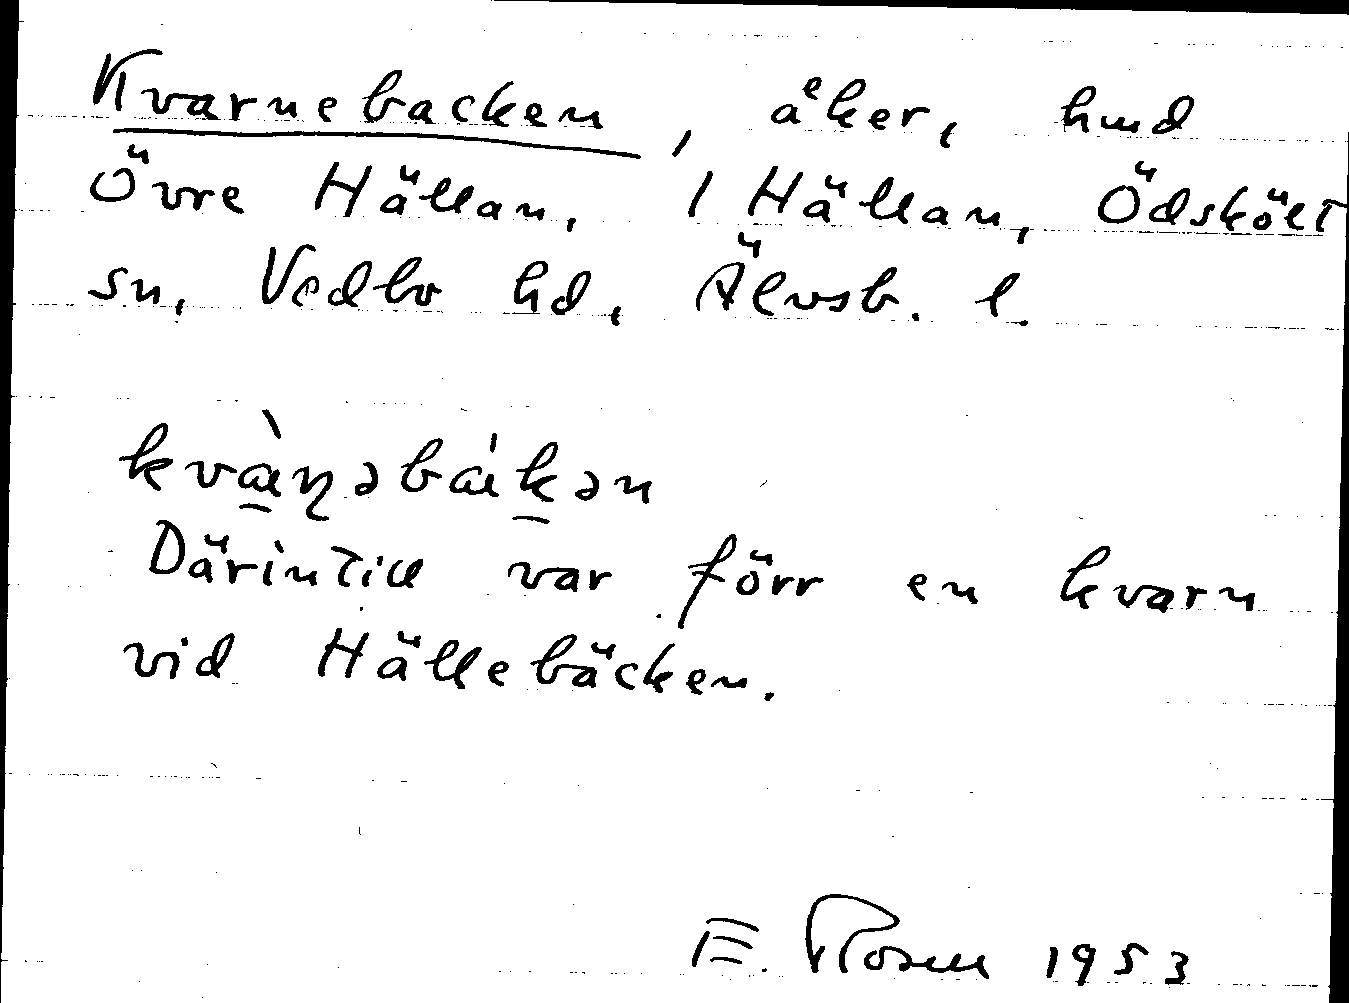 Kvarnebacken, åker, hmd
Övre Hällan, 1 Hällan, Ödskölt
sn, Vedbo hd, Älvsb. l.
kvàṇəbákən
Därintill var förr en kvarn
vid Hällebäcken.
E. Rosen 1953